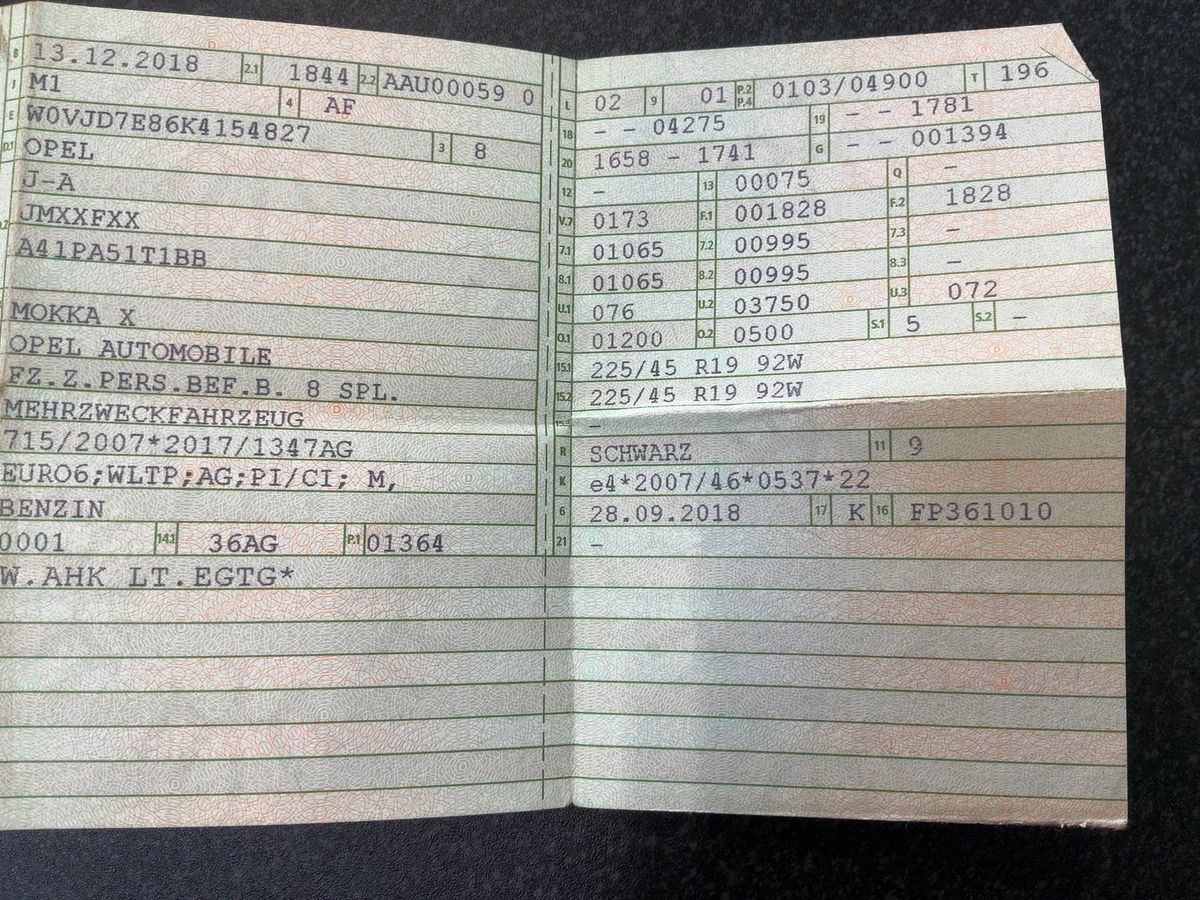 B 13.12.2018 2.1 1844 2.2 AAU00059 0
J M1 4 AF
E W0VJD7E86K4154827 3 8
D.1 OPEL
J-A
JMXXFXX
A41PA51T1BB
MOKKA X
OPEL AUTOMOBILE
FZ.Z.PERS.BEF.B. 8 SPL.
MEHRZWECKFAHRZEUG
715/2007*2017/1347AG
EURO6;WLTP;AG;PI/CI; M,
BENZIN
0001 14.1 36AG P.1 01364
W.AHK LT.EGTG*
L 02 9 01 P.2 P.4 0103/04900 T 196
18 - - 04275 19 - - 1781
20 1658 - 1741 G - - 001394
12 - 13 00075 Q -
V.7 0173 F.1 001828 F.2 1828
7.1 01065 7.2 00995 7.3 -
8.1 01065 8.2 00995 8.3 -
U.1 076 U.2 03750 U.3 072
O.1 01200 O.2 0500 S.1 5 S.2 -
15.1 225/45 R19 92W
15.2 225/45 R19 92W
15.3 -
R SCHWARZ 11 9
K e4*2007/46*0537*22
6 28.09.2018 17 K 16 FP361010
21 -